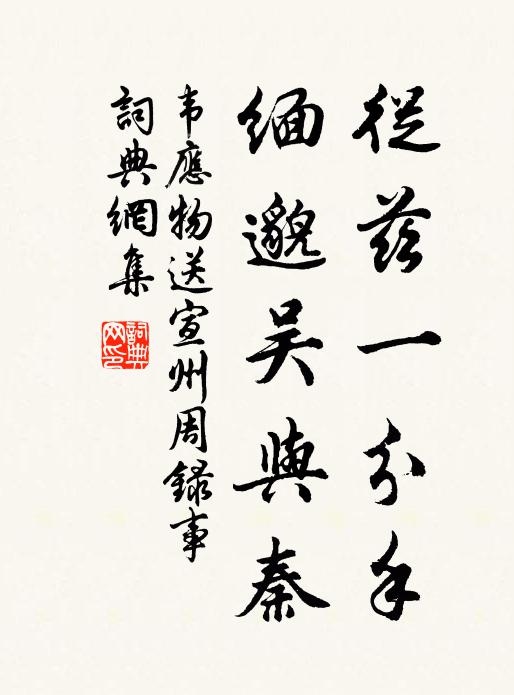 從茲一分手
緬邈吳與秦
韦應物送宣州周錄事
詞典網集
詞典網印